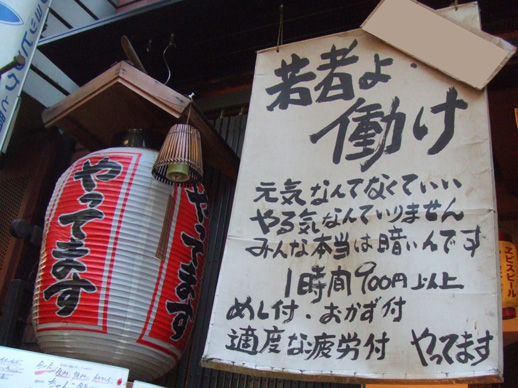 若者よ
働け
元気なんてなくていい
やる気なんていりません
みんな本当は暗いんです
1時間900円以上
めし付、おかず付
適度な疲労付 やってます
やってます
やってます
ヱビスビール